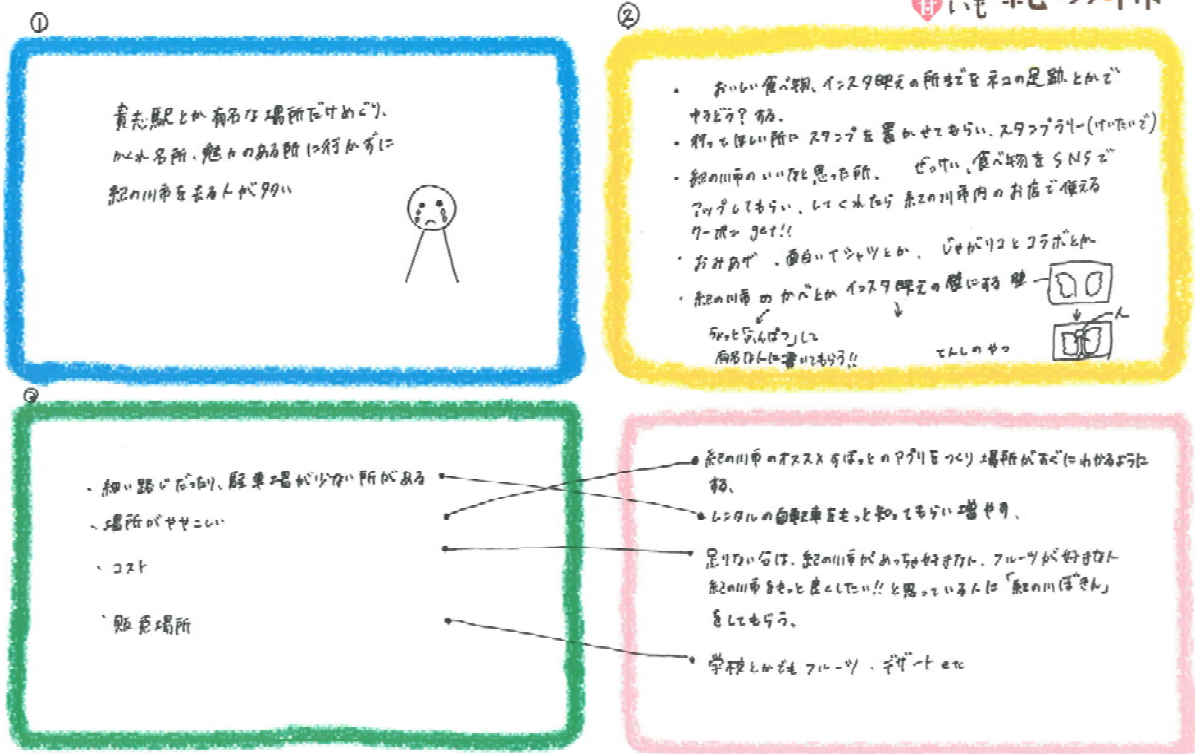 ①
貴志駅とか有名な場所だけめぐり、
かくれ名所、魅力のある所に行かずに
紀の川市を去る人が多い
②
・おいしい食べ物、インスタ映えの所までをネコの足跡とかで
ゆうどう?する。
・行ってほしい所にスタンプを置かせてもらい、スタンプラリー(けいたいで)
・紀の川市のいいなと思った所、ぜっけい、食べ物をSNSで
アップしてもらい、してくれたら紀の川市内のお店で使える
クーポンget!!
・おみあげ、面白いTシャツとか、じゃがリコとコラボとか
・紀の川市のかべとかインスタ映えの壁にする 壁
ちょっと「ふんぱつ」して
有名な人に書いてもらう!!
てんしのやつ
人
③
・細い路じだったり、駐車場が少ない所がある
・場所がややこしい
・コスト
・販売場所
・紀の川市のオススメすぽっとのアプリをつくり場所がすぐにわかるように
する、
・レンタルの自転車をもっと知ってもらい増やす、
足りない分は、紀の川市がめっちゃ好きな人、フルーツが好きな人
紀の川市をもっと良くしたい!!と思っている人に「紀の川ぼきん」
をしてもらう、
・学校とかでもフルーツ・デザートetc